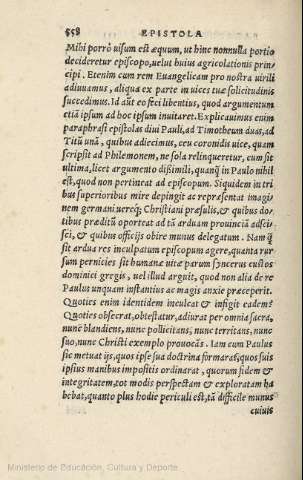 558 EPISTOLA
Mihi porrò uisum est æquum, ut hinc nonnulla portio
decideretur episcopo, uelut huius agricolationis prin-
cipi. Etenim cum rem Euangelicam pro nostra uirili
adiuuamus, aliqua ex parte in uices tuæ solicitudinis
succedimus. Id aūt eo feci libentius, quod argumentum
etiā ipsum ad hoc ipsum inuitaret. Explicauimus enim
paraphrasi epistolas diui Pauli, ad Timotheum duas, ad
Titū unā, quibus adiecimus, ceu coronidis uice, quam
scripsit ad Philemonem, ne sola relinqueretur, cum sit
ultima, licet argumento dissimili, quanq̄ in Paulo nihil
est, quod non pertineat ad episcopum. Siquidem in tri
bus superioribus mire depingit ac repræsentat imagi
nem germani uereq́; Christiani præsulis, & quibus do-
tibus præditū oporteat ad tā arduam prouinciā adsci-
sci, & quibus officijs obire munus delegatum. Nam q̄
sit ardua res inculpatum episcopum agere, quanta rur
sum pernicies sit humanæ uitæ parum syncerus custos
dominici gregis, uel illud arguit, quod non alia de re
Paulus unquam instantius ac magis anxie præceperit.
Quoties enim identidem inculcat & infigit eadem?
Quoties obsecrat, obtestatur, adiurat per omnia sacra,
nunc blandiens, nunc pollicitans, nunc territans, nunc
suo, nunc Christi exemplo prouocās. Iam cum Paulus
sic metuat ijs, quos ipse sua doctrina formarat, quos suis
ipsius manibus impositis ordinarat, quorum fidem &
integritatem, tot modis perspectam & exploratam ha
bebat, quanto plus hodie periculi est, tā difficile munus
cuiuis
Ministerio de Educación, Cultura y Deporte